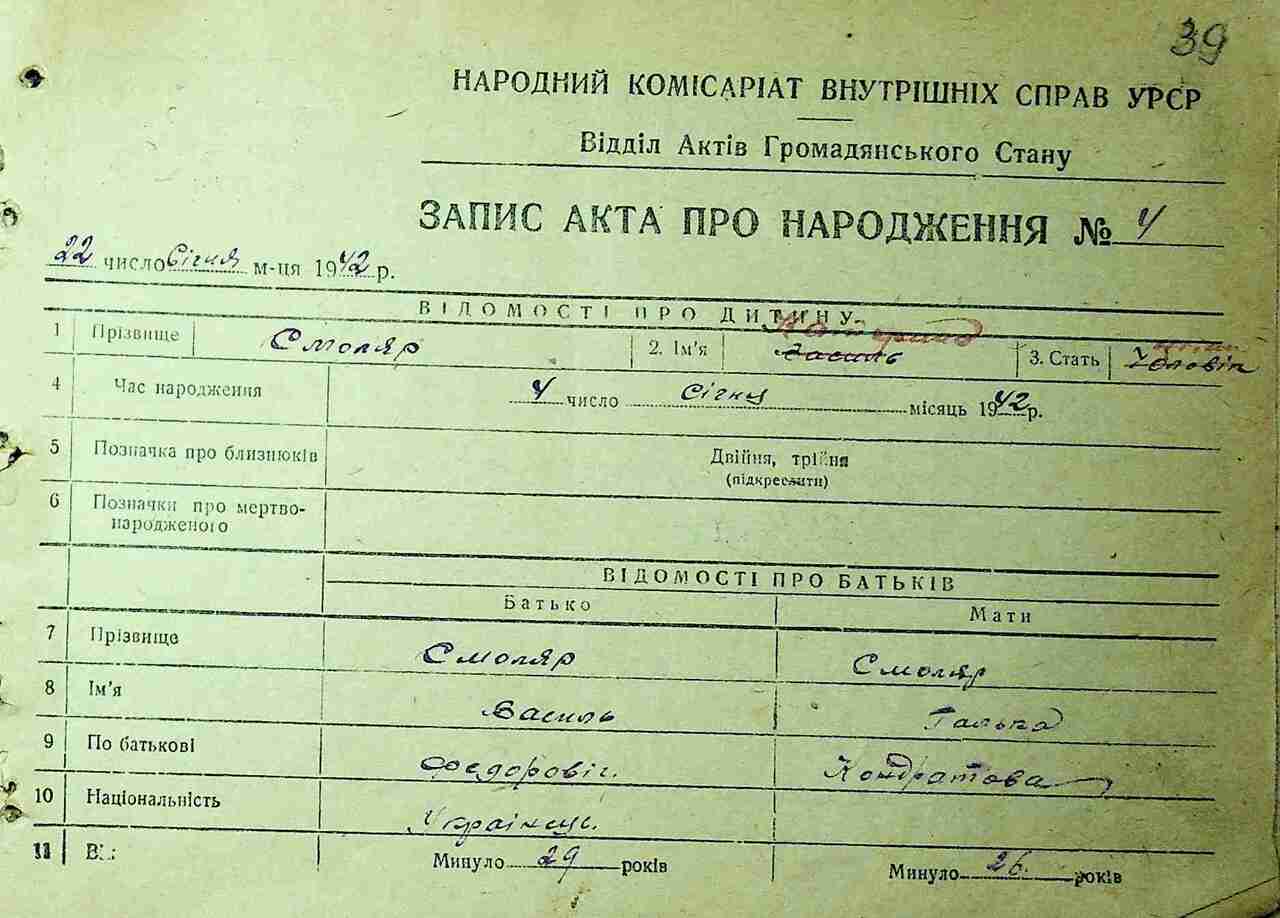 39
НАРОДНИЙ КОМІСАРІАТ ВНУТРІШНІХ СПРАВ УРСР
Відділ Актів Громадянського Стану
ЗАПИС АКТА ПРО НАРОДЖЕННЯ № 4
22 число Січня м-ця 1942 р.
ВІДОМОСТІ ПРО ДИТИНУ
1 Прізвище Смоляр 2. Ім'я Катерина Василь 3. Стать Чоловіч
4 Час народження 4 число Січня місяць 1942 р.
5 Позначка про близнюків Двійня, трійня
(підкреслити)
6 Позначки про мертво-
народженого
ВІДОМОСТІ ПРО БАТЬКІВ
Батько Мати
7 Прізвище Смоляр Смоляр
8 Ім'я Василь Галька
9 По батькові Федоровіч. Кондратова
10 Національність Українець.
11 Минуло 29 років Минуло 26. років